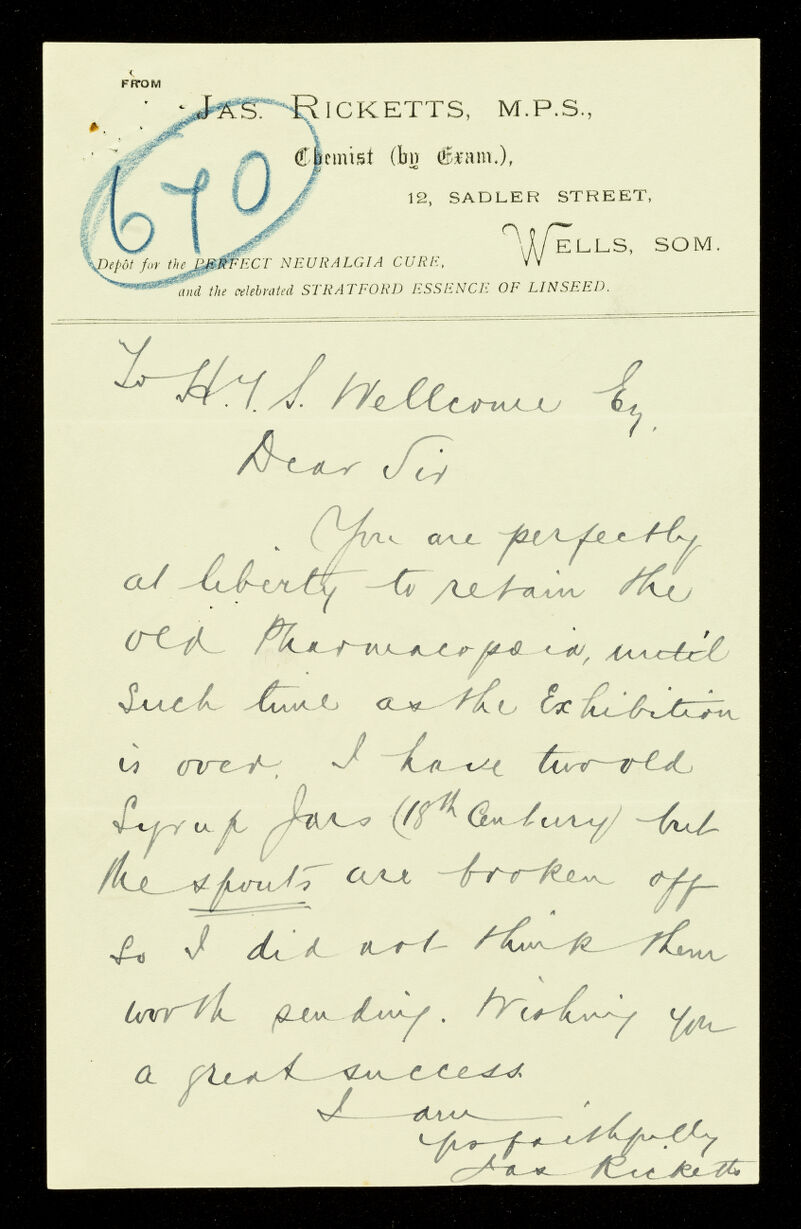 FROM
JAS. RICKETTS, M.P.S.,
Chemist (by Exam.),
12, SADLER STREET,
WELLS, SOM.
670
Depôt for the PERFECT NEURALGIA CURE,
and the celebrated STRATFORD ESSENCE OF LINSEED.
To H. T. S. Wellcome Esq.
Dear Sir
You are perfectly
at liberty to retain the
old Pharmacopœia, until
such time as the Exhibition
is over. I have two old
Syrup Jars (18th Century) but
the spouts are broken off
so I did not think them
worth sending. Wishing you
a great success.
I am
yrs faithfully
Jas Ricketts